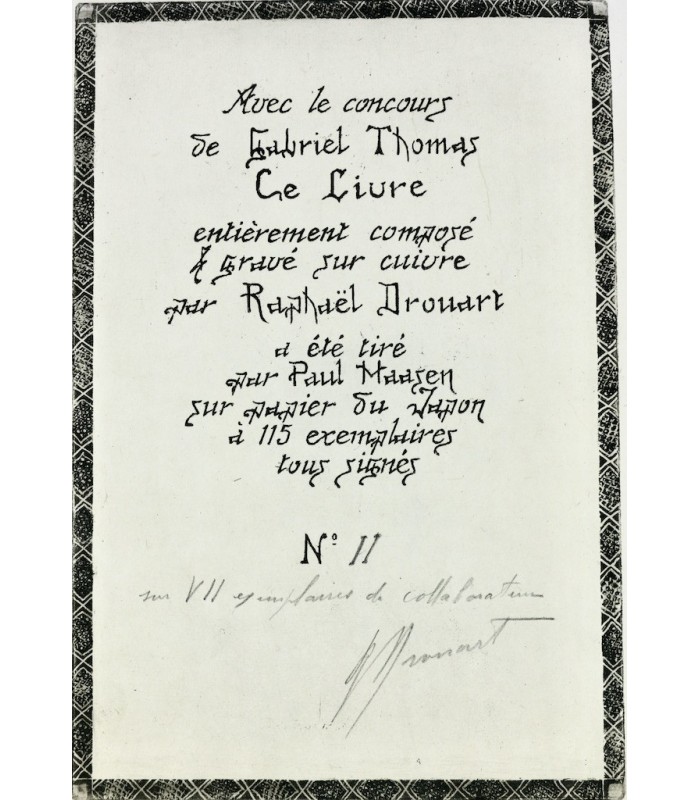 Avec le concours
de Gabriel Thomas
Ce Livre
entièrement composé
& gravé sur cuivre
par Raphaël Drouart
a été tiré
par Paul Maasen
sur papier du Japon
à 115 exemplaires
tous signés
Nº II
sur VII exemplaires de collaborateurs
R Drouart